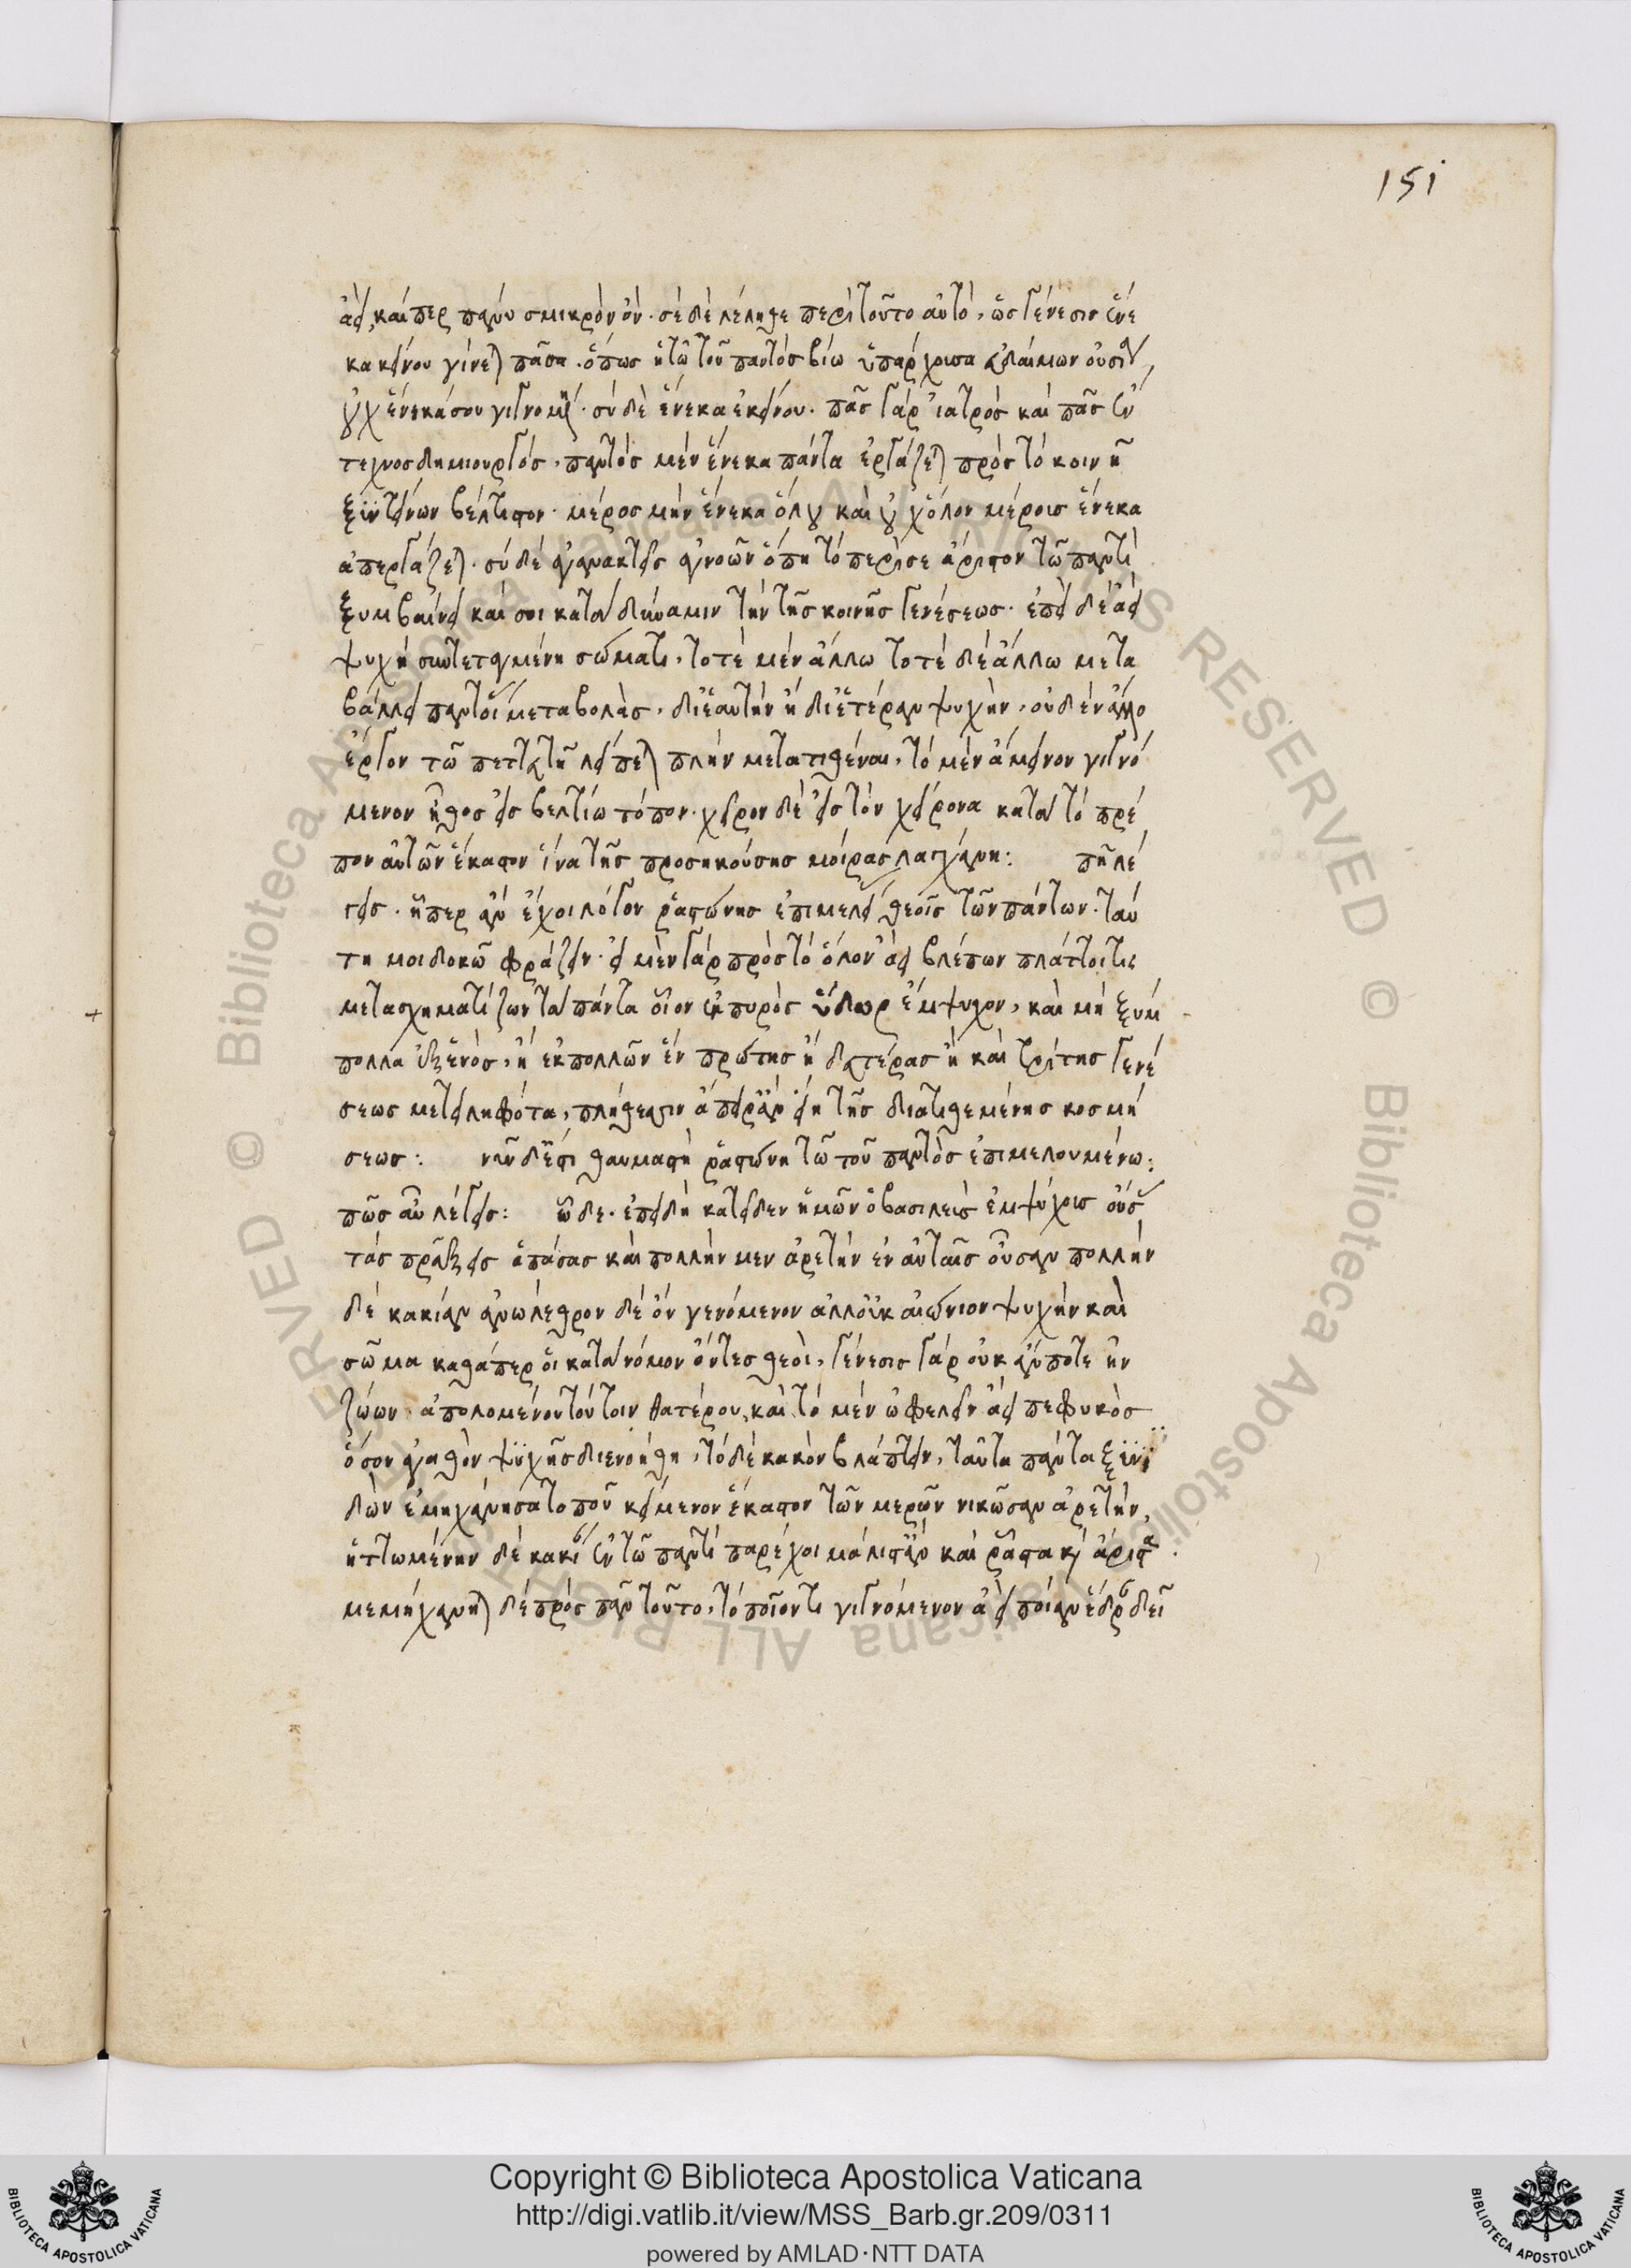 151
ἀεὶ, καίπερ πάνυ σμικρὸν ὄν· σὲ δὲ λέληθε περὶ τοῦτο αὐτὸ, ὡς γένεσις ἕνε
κα κείνου γίνεται πᾶσα· ὅπως ᾖ τῶ τοῦ παντὸς βίω ὑπάρχουσα εὐδαίμων οὐσία,
οὐχ ἕνεκά σου γιγνομένη· σὺ δὲ ἕνεκα ἐκείνου· πᾶς γὰρ ἰατρὸς καὶ πᾶς ἔν
τεχνος δημιουργός, παντὸς μὲν ἕνεκα πάντα ἐργάζεται πρὸς τὸ κοινῆ
ξυντείνων βέλτιστον· μέρος μὴν ἕνεκα ὅλου καὶ οὐχ ὅλον μέρους ἕνεκα
ἀπεργάζεται· σὺ δὲ ἀγανακτεῖς ἀγνοῶν ὅπη τὸ περί σε ἄριστον τῶ παντὶ
ξυμβαίνει καὶ σοι κατὰ δύναμιν τὴν τῆς κοινῆς γενέσεως· ἐπεὶ δὲ ἀεὶ
ψυχὴ συντεταγμένη σώματι, τοτὲ μὲν ἄλλω τοτὲ δὲ ἄλλω μετα
βάλλει παντοίας μεταβολὰς, δι ἑαυτὴν ἢ δι ἑτέραν ψυχὴν, οὐδὲν ἄλλο
ἔργον τῶ πεττευτῆ λείπεται πλὴν μετατιθέναι, τὸ μὲν ἄμεινον γιγνό
μενον ἦθος εἰς βελτίω τόπον· χεῖρον δὲ εἰς τὸν χείρονα κατὰ τὸ πρέ
πον αὐτῶν ἕκαστον ἵνα τῆς προσηκούσης μοίρας λαγχάνη: πῆ λέ
γεις· ᾗπερ ἂν ἔχοι λόγον ῥαστώνης ἐπιμελείας θεοῖς τῶν πάντων· ταύ
τη μοι δοκῶ φράζειν· εἰ μὲν γὰρ πρὸς τὸ ὅλον ἀεὶ βλέπων πλάττοι τις
μετασχηματίζων τὰ πάντα οἷον ἐκ πυρὸς ὕδωρ ἔμψυχον, καὶ μὴ ξυμ
πολλα ἐξ ἑνὸς, ἢ ἐκ πολλῶν ἓν πρώτης ἢ δευτέρας ἢ καὶ τρίτης γενέ
σεως μετειληφότα, πλήθεσιν ἄπειρ ἂν εἴη τῆς διατιθεμένης κοσμή
σεως: νῦν δ ἔστι θαυμαστὴ ῥαστώνη τῶ τοῦ παντὸς ἐπιμελουμένω:
πῶς αὖ λέγεις: ὧδε· ἐπειδὴ κατεῖδεν ἡμῶν ὁ βασιλεὺς ἐμψύχους οὔσας
τὰς πράξεις ἁπάσας καὶ πολλὴν μεν ἀρετὴν ἐν αὐταῖς οὖσαν πολλὴν
δὲ κακίαν ἀνώλεθρον δὲ ὂν γενόμενον ἀλλ οὐκ αἰώνιον ψυχὴν καὶ
σῶμα καθάπερ οἱ κατὰ νόμον ὄντες θεοὶ, γένεσις γὰρ οὐκ ἄν ποτε ἦν
ζώων· ἀπολομένου τούτοιν θατέρου, καὶ τὸ μὲν ὠφελεῖν ἀεὶ πεφυκὸς
ὅσον ἀγαθὸν ψυχῆς διενοήθη, τὸ δὲ κακὸν βλάπτειν, ταῦτα πάντα ξυνι
δὼν ἐμηχανήσατο ποῦ κείμενον ἕκαστον τῶν μερῶν νικῶσαν ἀρετὴν,
ἡττωμένην δὲ κακίαν ἐν τῶ παντὶ παρέχοι μάλιστ ἂν καὶ ῥᾶστα καὶ ἄριστα.
μεμηχάνηται δὲ πρὸς πᾶν τοῦτο, τὸ ποῖόν τι γιγνόμενον ἀεὶ ποίαν ἕδραν δεῖ
Copyright © Biblioteca Apostolica Vaticana
http://digi.vatlib.it/view/MSS_Barb.gr.209/0311
powered by AMLAD·NTT DATA